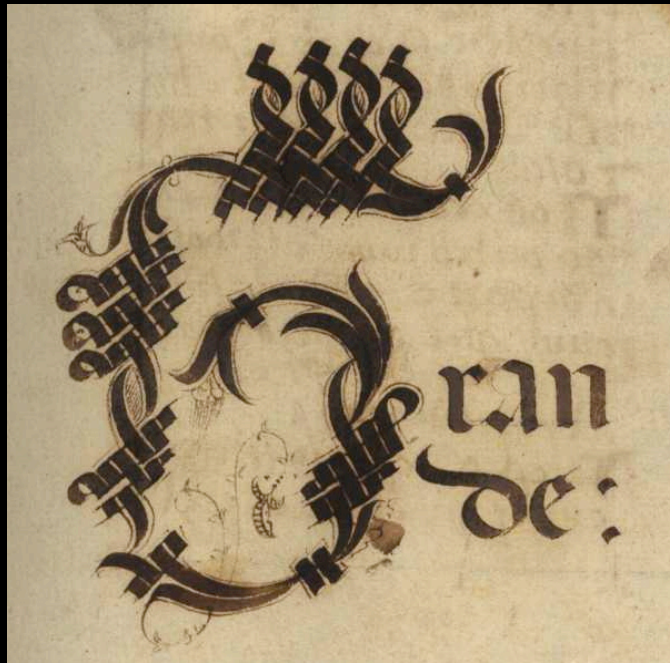 Gran
de: